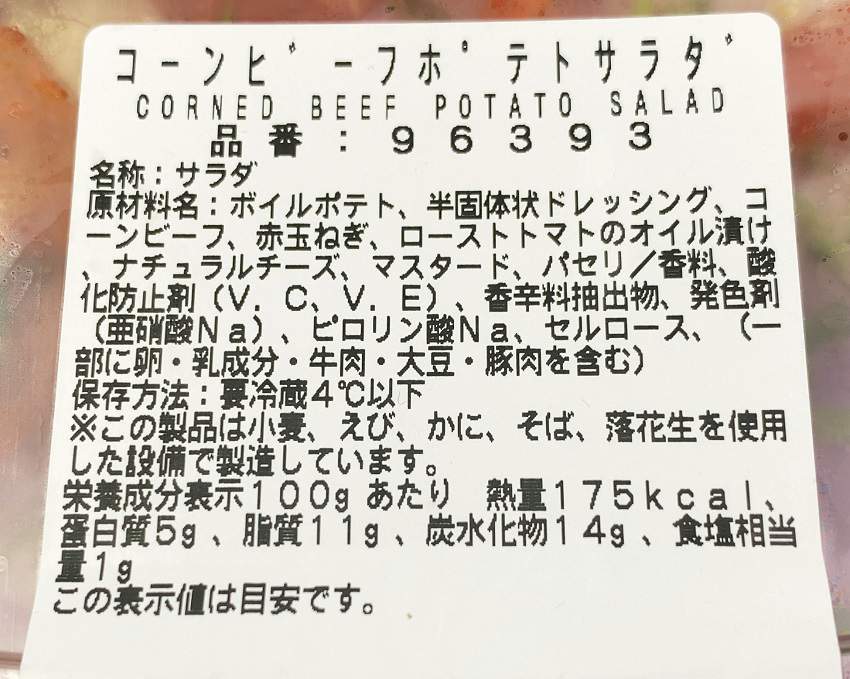 コーンビーフポテトサラダ
CORNED BEEF POTATO SALAD
品番：96393
名称：サラダ
原材料名：ボイルポテト、半固体状ドレッシング、コ
ーンビーフ、赤玉ねぎ、ローストトマトのオイル漬け
、ナチュラルチーズ、マスタード、パセリ／香料、酸
化防止剤（Ｖ．Ｃ、Ｖ．Ｅ）、香辛料抽出物、発色剤
（亜硝酸Ｎａ）、ピロリン酸Ｎａ、セルロース、（一
部に卵・乳成分・牛肉・大豆・豚肉を含む）
保存方法：要冷蔵４℃以下
※この製品は小麦、えび、かに、そば、落花生を使用
した設備で製造しています。
栄養成分表示１００g あたり　熱量１７５ｋｃａｌ、
蛋白質5g 、脂質１１g 、炭水化物１４g 、食塩相当
量1g
この表示値は目安です。